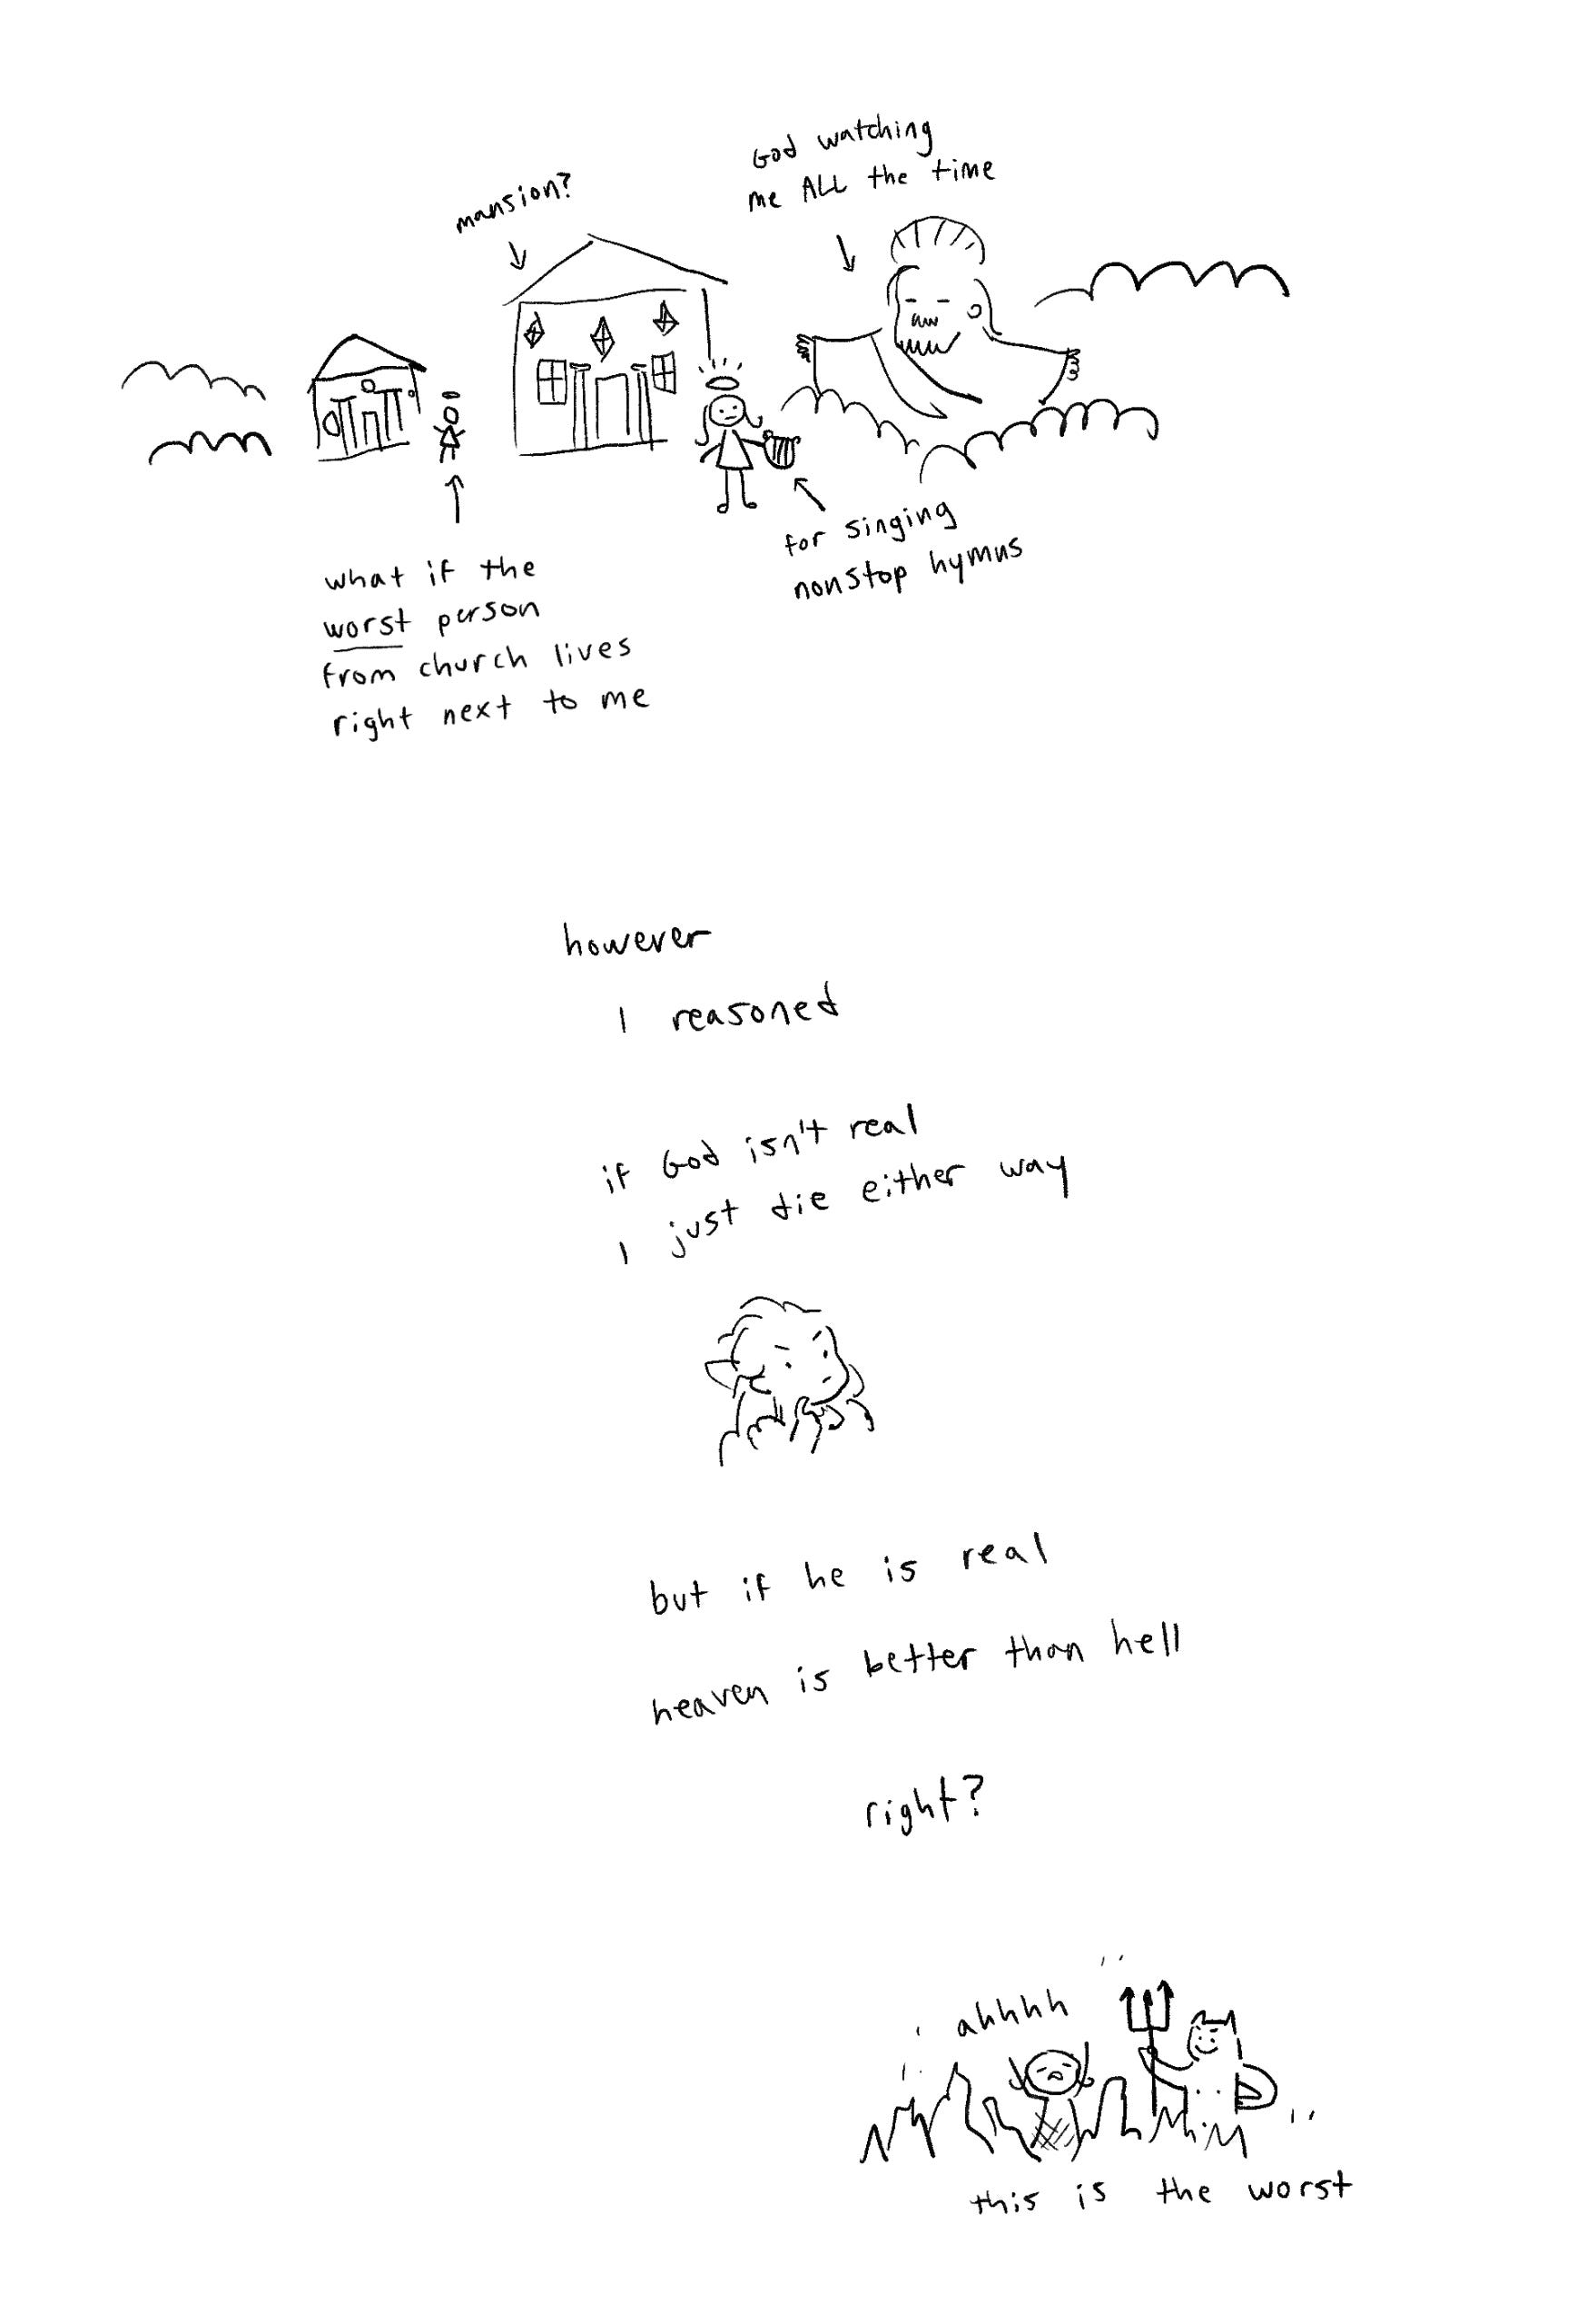 mansion?
God watching
me ALL the time
for singing
nonstop hymns
what if the
worst person
from church lives
right next to me
however
I reasoned
if God isn't real
I just die either way
but if he is real
heaven is better than hell
right?
ahhhh
this is the worst